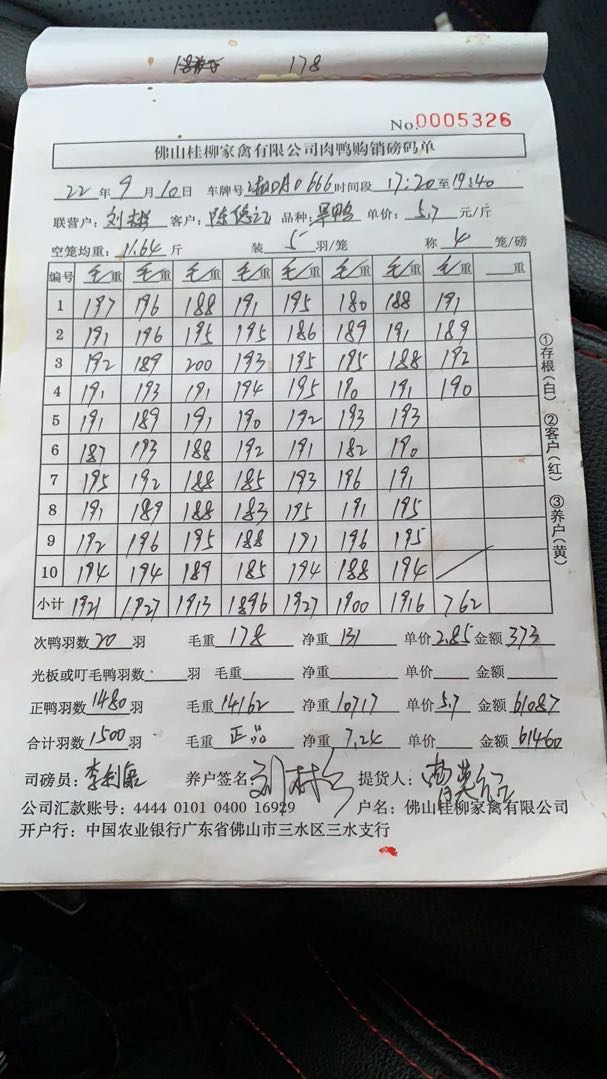 178
No.0005326
佛山桂柳家禽有限公司肉鸭购销磅码单
22年9月10日 车牌号 0666时间段 17:20至19:40
联营户:刘 客户:陈德 品种:旱鸭 单价:5.7元/斤
空笼均重:11.64斤 装5羽/笼 称4笼/磅
编号 毛/重 毛/重 毛/重 毛/重 毛/重 毛/重 毛/重 毛/重 重
1 197 196 188 191 195 180 188 191
2 191 196 195 195 186 189 191 189
3 192 189 200 193 195 195 188 192
4 191 193 191 194 195 190 191 190
5 191 189 191 190 192 193 193
6 187 193 188 192 191 182 190
7 195 192 188 185 193 196 191
8 191 189 188 183 195 191 195
9 192 196 195 188 191 196 195
10 194 194 189 185 194 188 194
小计 1921 1927 1913 1896 1927 1900 1916 762
①存根(白) ②客户(红) ③养户(黄)
次鸭羽数20羽 毛重178 净重131 单价2.85金额373
光板或叮毛鸭羽数 羽 毛重 净重 单价 金额
正鸭羽数1480羽 毛重14162 净重10717 单价5.7金额61087
合计羽数1500羽 毛重正品 净重7.24 单价 金额61460
司磅员:李 养户签名:刘 提货人:曹
公司汇款账号:4444 0101 0400 16929 户名:佛山桂柳家禽有限公司
开户行:中国农业银行广东省佛山市三水区三水支行